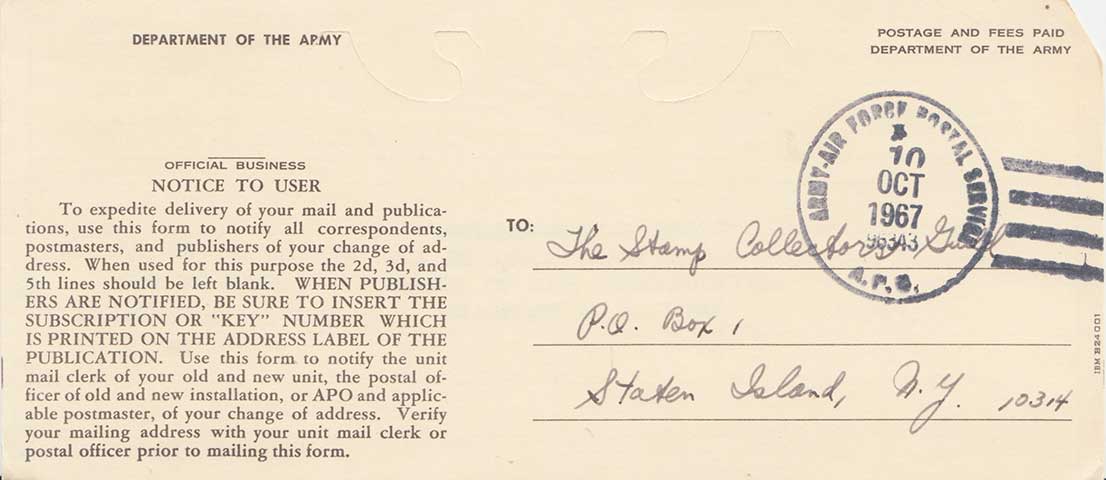 DEPARTMENT OF THE ARMY
POSTAGE AND FEES PAID
DEPARTMENT OF THE ARMY
ARMY-AIR FORCE POSTAL SERVICE
10
OCT
1967
A.P.O.
OFFICIAL BUSINESS
NOTICE TO USER
To expedite delivery of your mail and publica-
tions, use this form to notify all correspondents,
postmasters, and publishers of your change of ad-
dress. When used for this purpose the 2d, 3d, and
5th lines should be left blank. WHEN PUBLISH-
ERS ARE NOTIFIED, BE SURE TO INSERT THE
SUBSCRIPTION OR "KEY" NUMBER WHICH
IS PRINTED ON THE ADDRESS LABEL OF THE
PUBLICATION. Use this form to notify the unit
mail clerk of your old and new unit, the postal of-
ficer of old and new installation, or APO and applic-
able postmaster, of your change of address. Verify
your mailing address with your unit mail clerk or
postal officer prior to mailing this form.
TO:
The Stamp Collectors Guild
P.O. Box 1
Staten Island, N.Y. 10314
IBM B24001